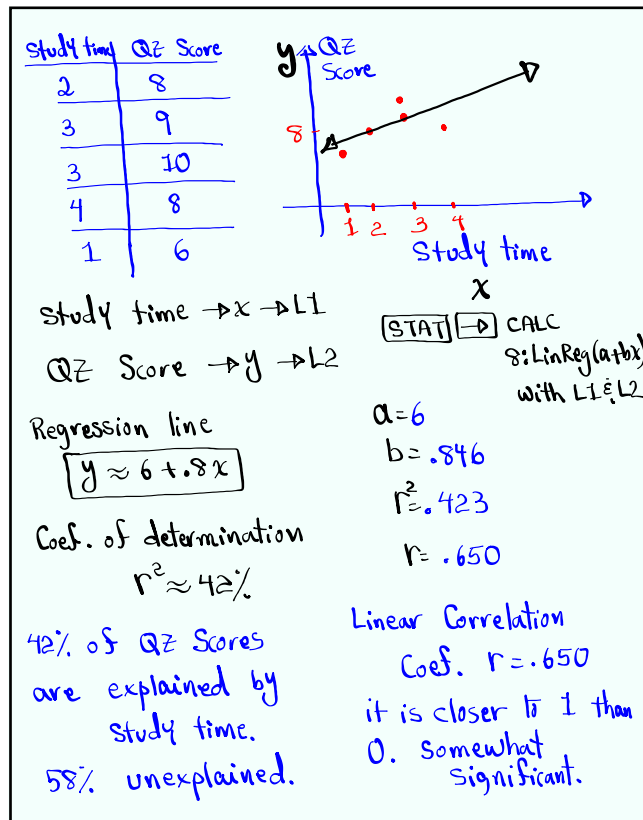 Study time QZ Score
2 8
3 9
3 10
4 8
1 6
y QZ
Score
8
1 2 3 4
Study time
x
Study time → x → L1
QZ Score → y → L2
STAT → CALC
8:LinReg(a+bx)
with L1 & L2
Regression line
y ≈ 6 + .8x
a = 6
b = .846
r² = .423
r = .650
Coef. of determination
r² ≈ 42%
42% of QZ Scores
are explained by
Study time.
58% unexplained.
Linear Correlation
Coef. r = .650
it is closer to 1 than
0. Somewhat
Significant.